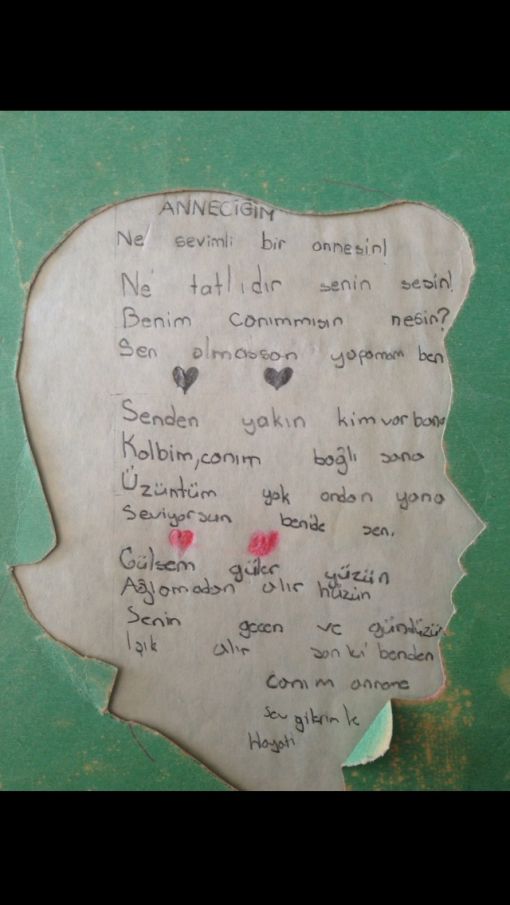 ANNECİĞİM
Ne sevimli bir annesin!
Ne tatlıdır senin sesin!
Benim canımmısın nesin?
Sen olmassan yapamam ben
Senden yakın kim var bana
Kalbim, canım bağlı sana
Üzüntüm yok ondan yana
Seviyorsun benide sen.
Gülsem güler yüzün
Ağlamadan alır hüzün
Senin gecen ve gündüzün
Işık alır sanki benden
Canım anneme
Sevgilerimle
Hayati